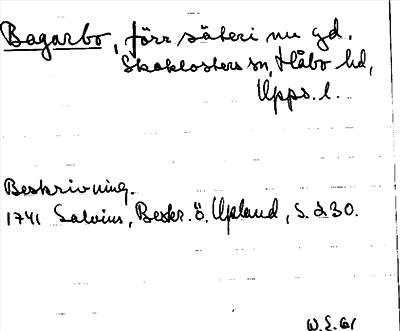 Bagarbo, förr säteri nu gd.
Skoklosters sn, Håbo hd,
Upps. l.
Beskrivning.
1741 Salvius, Beskr. ö. Upland, S. 230.